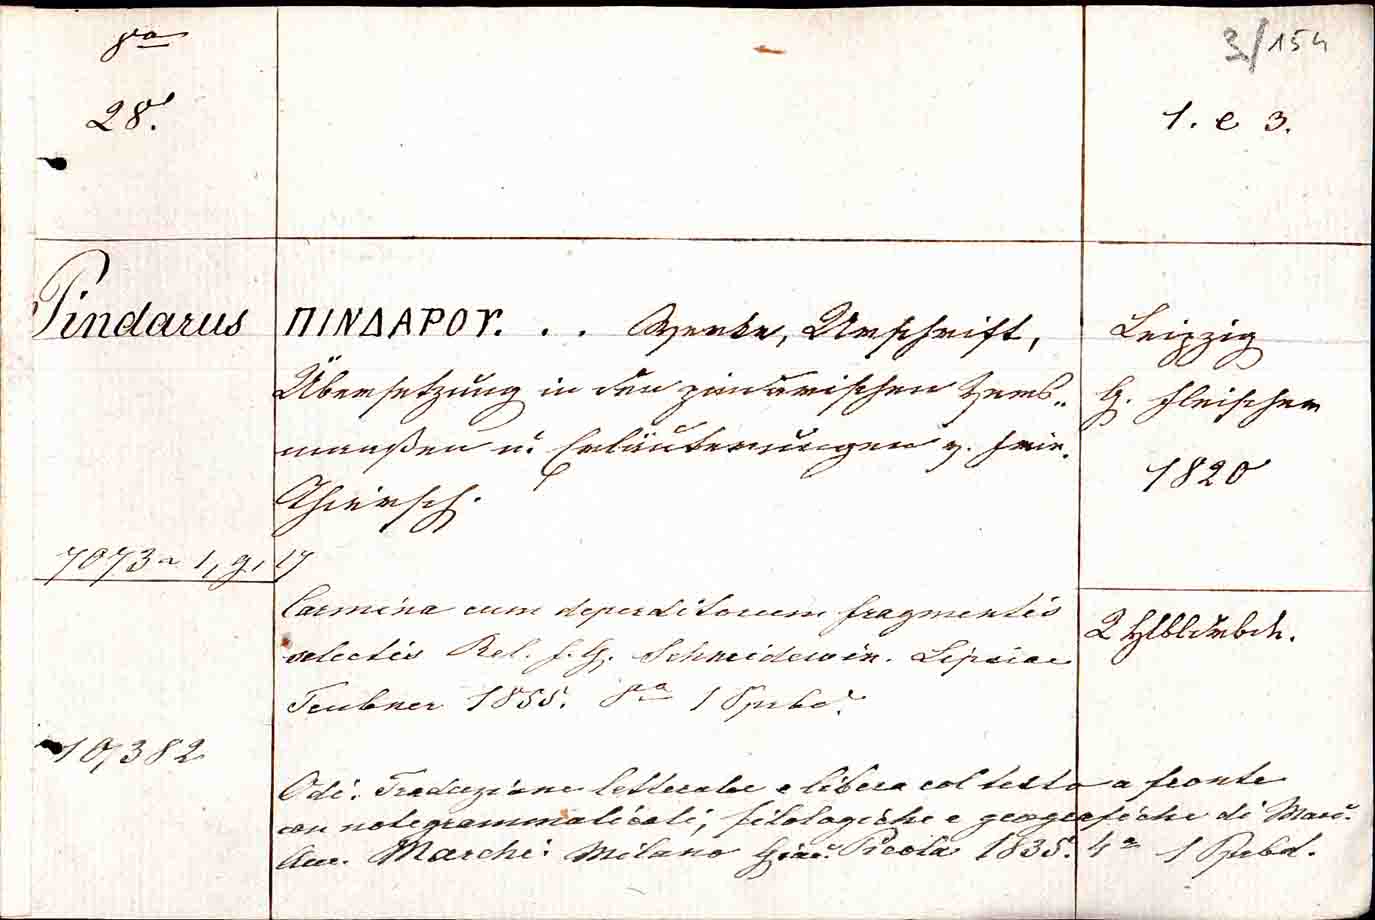 8va
28.
3/154
1. e 3.
Pindarus
ΠΙΝΔΑΡΟΥ. . . Werke, Urschrift,
Übersetzung in den pindarischen Vers„
maaßen u. Erläuterungen v. Frie.
Thiersch.
Leipzig
G. Fleischer
1820
2 Hlbldrbde.
7073 1, g, 17
Carmina cum deperditorum fragmentis
selectis Rel. F. G. Schneidewin. Lipsiae
Teubner 1855. 8va 1 Pprbd.
10,382
Odi. Traduzione letterale e libera col testo a fronte
con note grammaticali, filologiche e geografiche di Marc.
Aur. Marchi. Milano Giac. Pirola 1835. 4a 1 Pprbd.